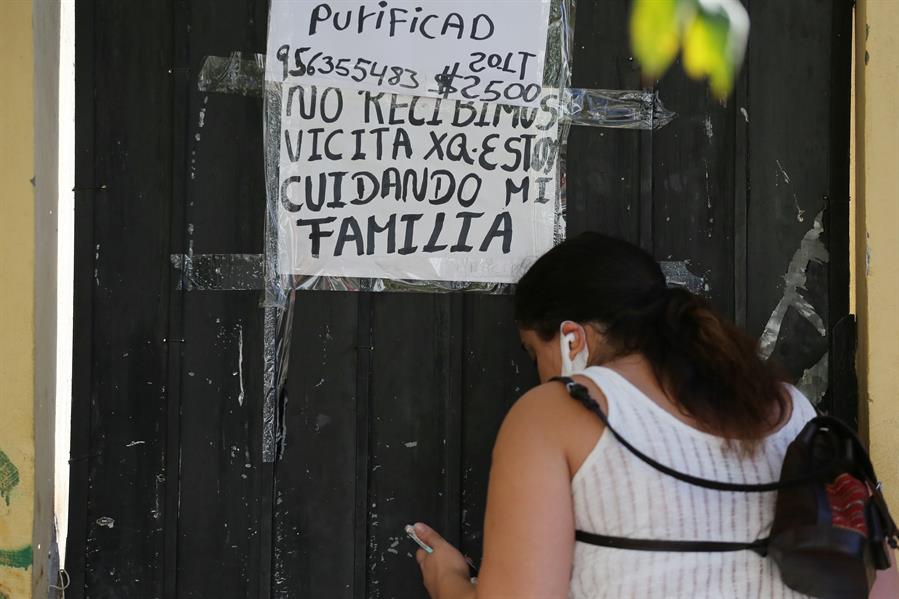 PURIFICAD
20LT
956355483 $2500
NO RECIBIMOS
VICITA XQ. ESTOY
CUIDANDO MI
FAMILIA